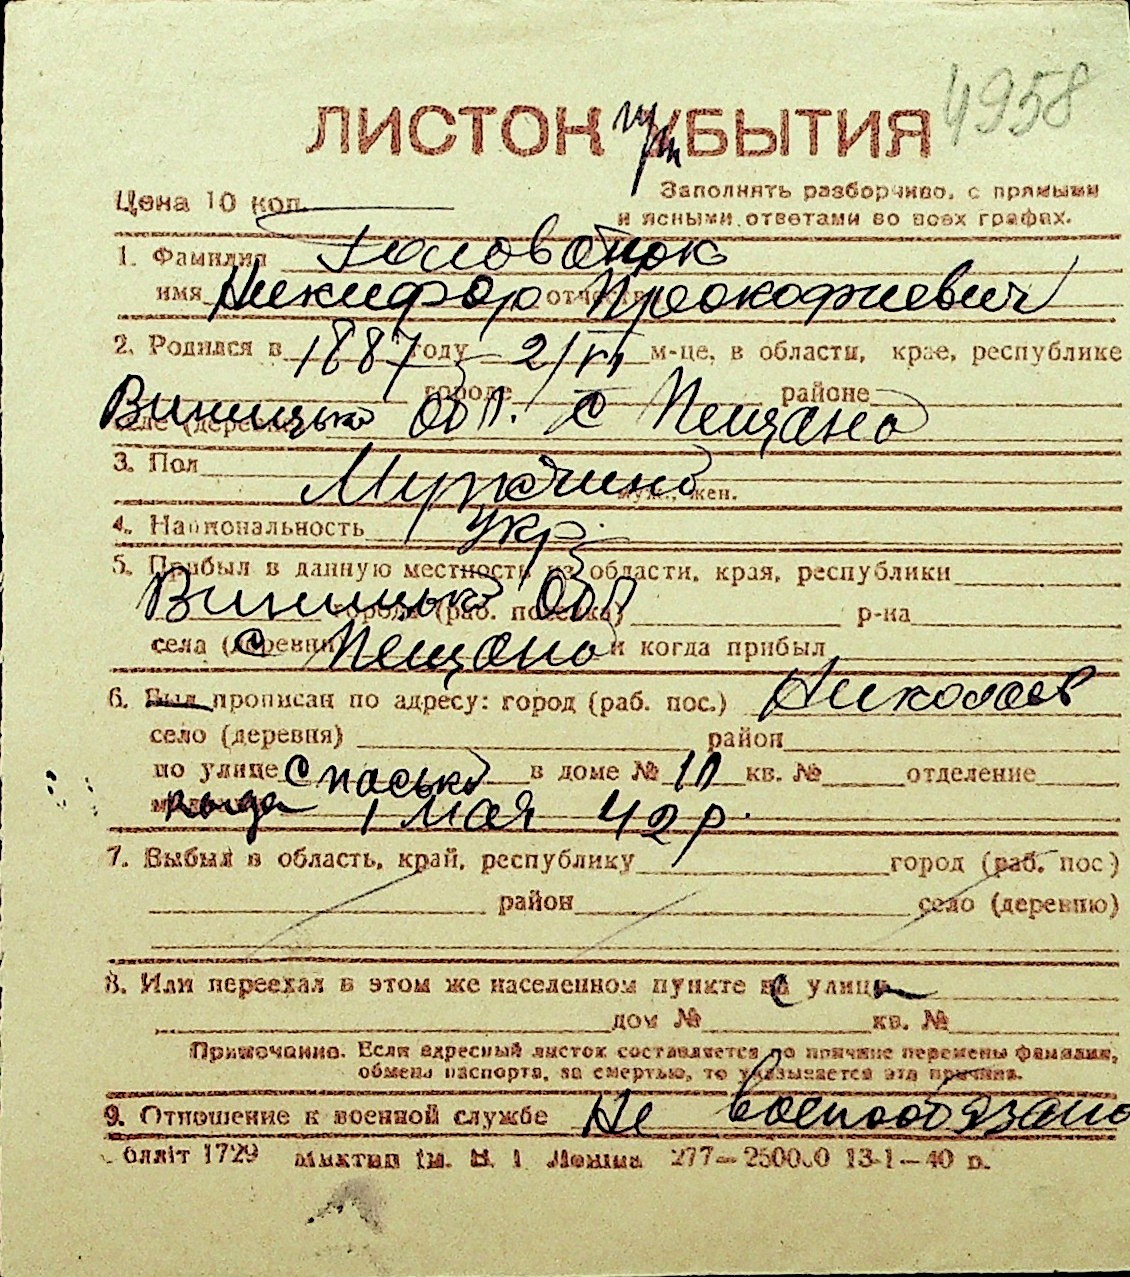 4958
ЛИСТОК УБЫТИЯ
Цена 10 коп.
Заполнять разборчиво, с прямыми
и ясными ответами во всех графах.
1. Фамилия Головатюк
имя Никифор отчество Прокофиевич
2. Родился в 1887 году 2/VI м-це, в области, крае, республике
городе районе
селе (деревне) Виницько Обл. с Пещано
3. Пол Мужчино
муж., жен.
4. Национальность укр.
5. Прибыл в данную местность из области, края, республики
Виницько Обл города (раб. поселка) р-на
села (деревни) с Пещано и когда прибыл
6. Был прописан по адресу: город (раб. пос.) Николаев
село (деревня) район
по улице Спасько в доме № кв. № отделение
1 мая 42 р.
7. Выбыл в область, край, республику город (раб. пос)
район село (деревню)
8. Или переехал в этом же населенном пункте на улицу
дом № кв. №
Примечание. Если адресный листок составляется по причине перемены фамилии,
обмена паспорта, за смертью, то указывается эта причина.
9. Отношение к военной службе Не воєнообязано
олліт 1729 Миктип ім. В. І Леніна 277—25000 13-1—40 р.